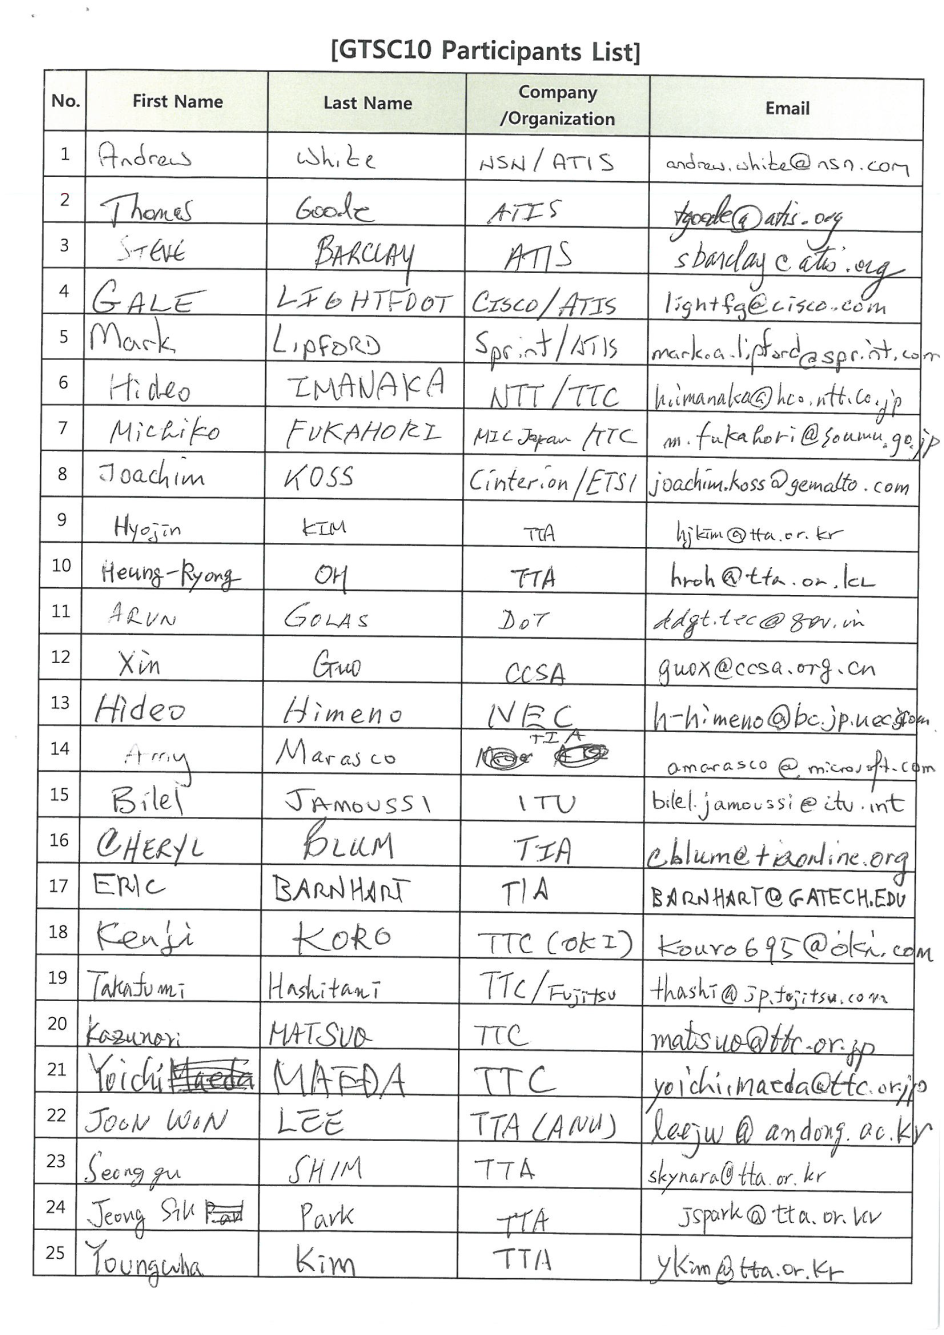 [GTSC10 Participants List]
No. First Name Last Name Company /Organization Email
1 Andrew White NSN/ATIS andrew.white@nsn.com
2 Thomas Goode ATIS tgoode@atis.org
3 STEVE BARCLAY ATIS sbarclay@atis.org
4 GALE LIGHTFOOT CISCO/ATIS lightfg@cisco.com
5 Mark LIPFORD Sprint/ATIS mark.a.lipford@sprint.com
6 Hideo IMANAKA NTT/TTC hiimanaka@hco.ntt.co.jp
7 Michiko FUKAHORI MIC Japan/TTC m.fukahori@soumu.go.jp
8 Joachim KOSS Cinterion/ETSI joachim.koss@gemalto.com
9 Hyojin KIM TTA hjkim@tta.or.kr
10 Heung-Ryong OH TTA hroh@tta.or.kr
11 ARUN GOLAS DOT ddgt.tec@gov.in
12 Xin Guo CCSA guox@ccsa.org.cn
13 Hideo Himeno NEC h-himeno@bc.jp.nec.com
14 Amy Marasco TIA amarasco@microsoft.com
15 Bilel JAMOUSSI ITU bilel.jamoussi@itu.int
16 CHERYL BLUM TIA cblum@tiaonline.org
17 ERIC BARNHART TIA BARNHART@GATECH.EDU
18 Kenji KORO TTC (OKI) kouro695@oki.com
19 Takafumi Hashitani TTC/Fujitsu thashi@jp.fujitsu.com
20 Kazunori MATSUO TTC matsuo@ttc.or.jp
21 Yoichi Maeda MAEDA TTC yoichi.maeda@ttc.or.jp
22 JOON WON LEE TTA (ANU) leejw@andong.ac.kr
23 Seonggu SHIM TTA skynara@tta.or.kr
24 Jeong Sik Park TTA jspark@tta.or.kr
25 Youngwha Kim TTA ykim@tta.or.kr